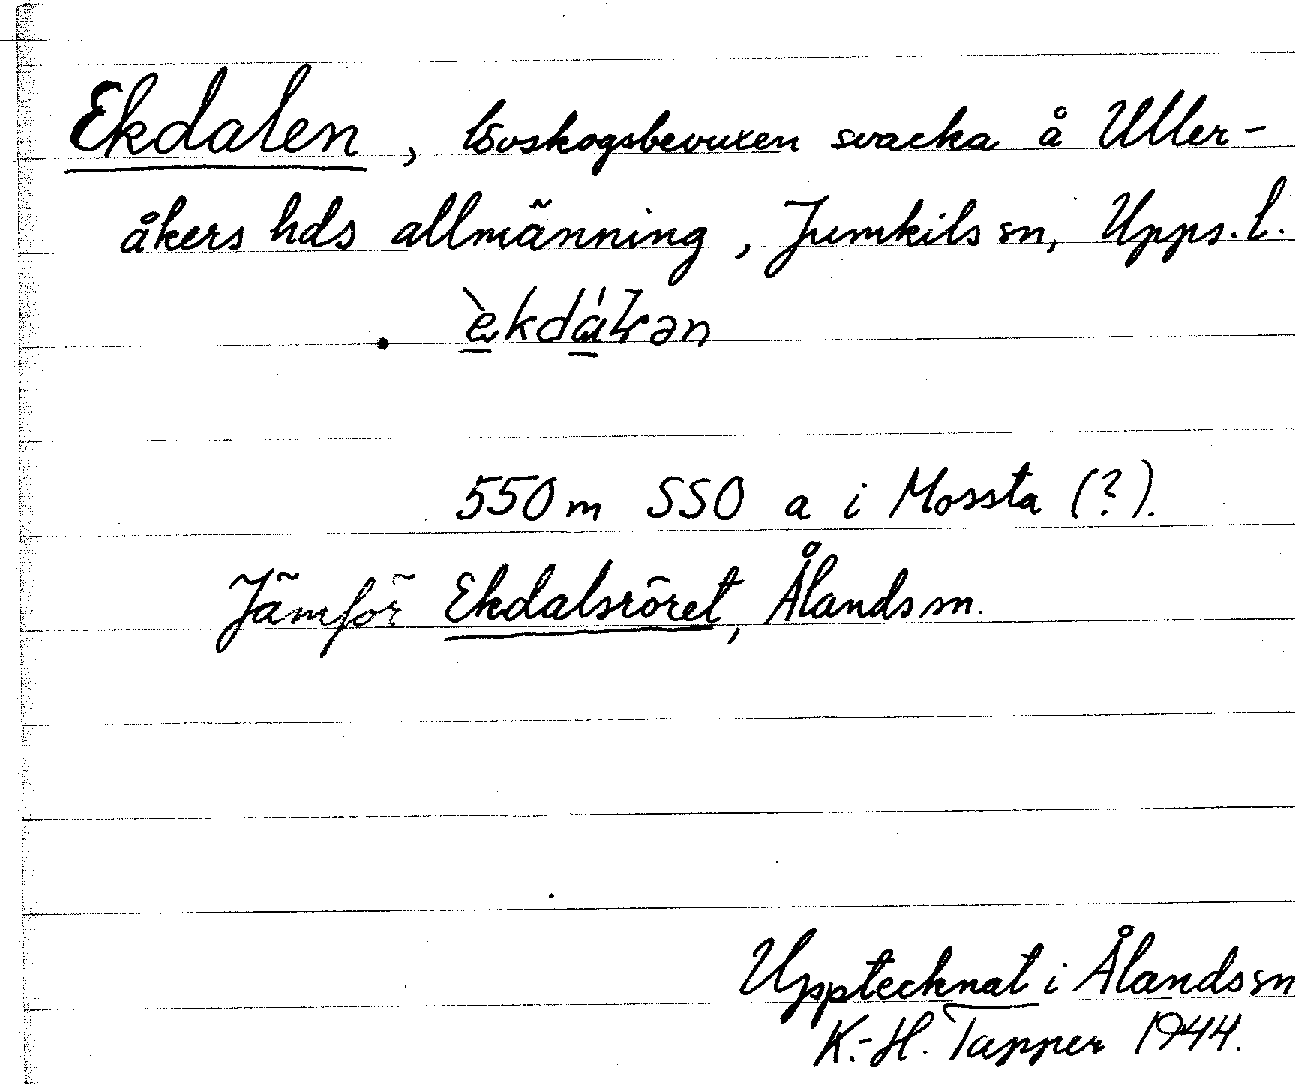 Ekdalen, lövskogsbevuxen svacka å Uller-
åkers hds allmänning, Jumkils sn, Upps. l.
èkdáɫən
550 m SSO a i Mossta (?).
Jämför Ekdalsröret, Ålands sn.
Upptecknat i Ålands sn
K.-H. Tapper 1944.